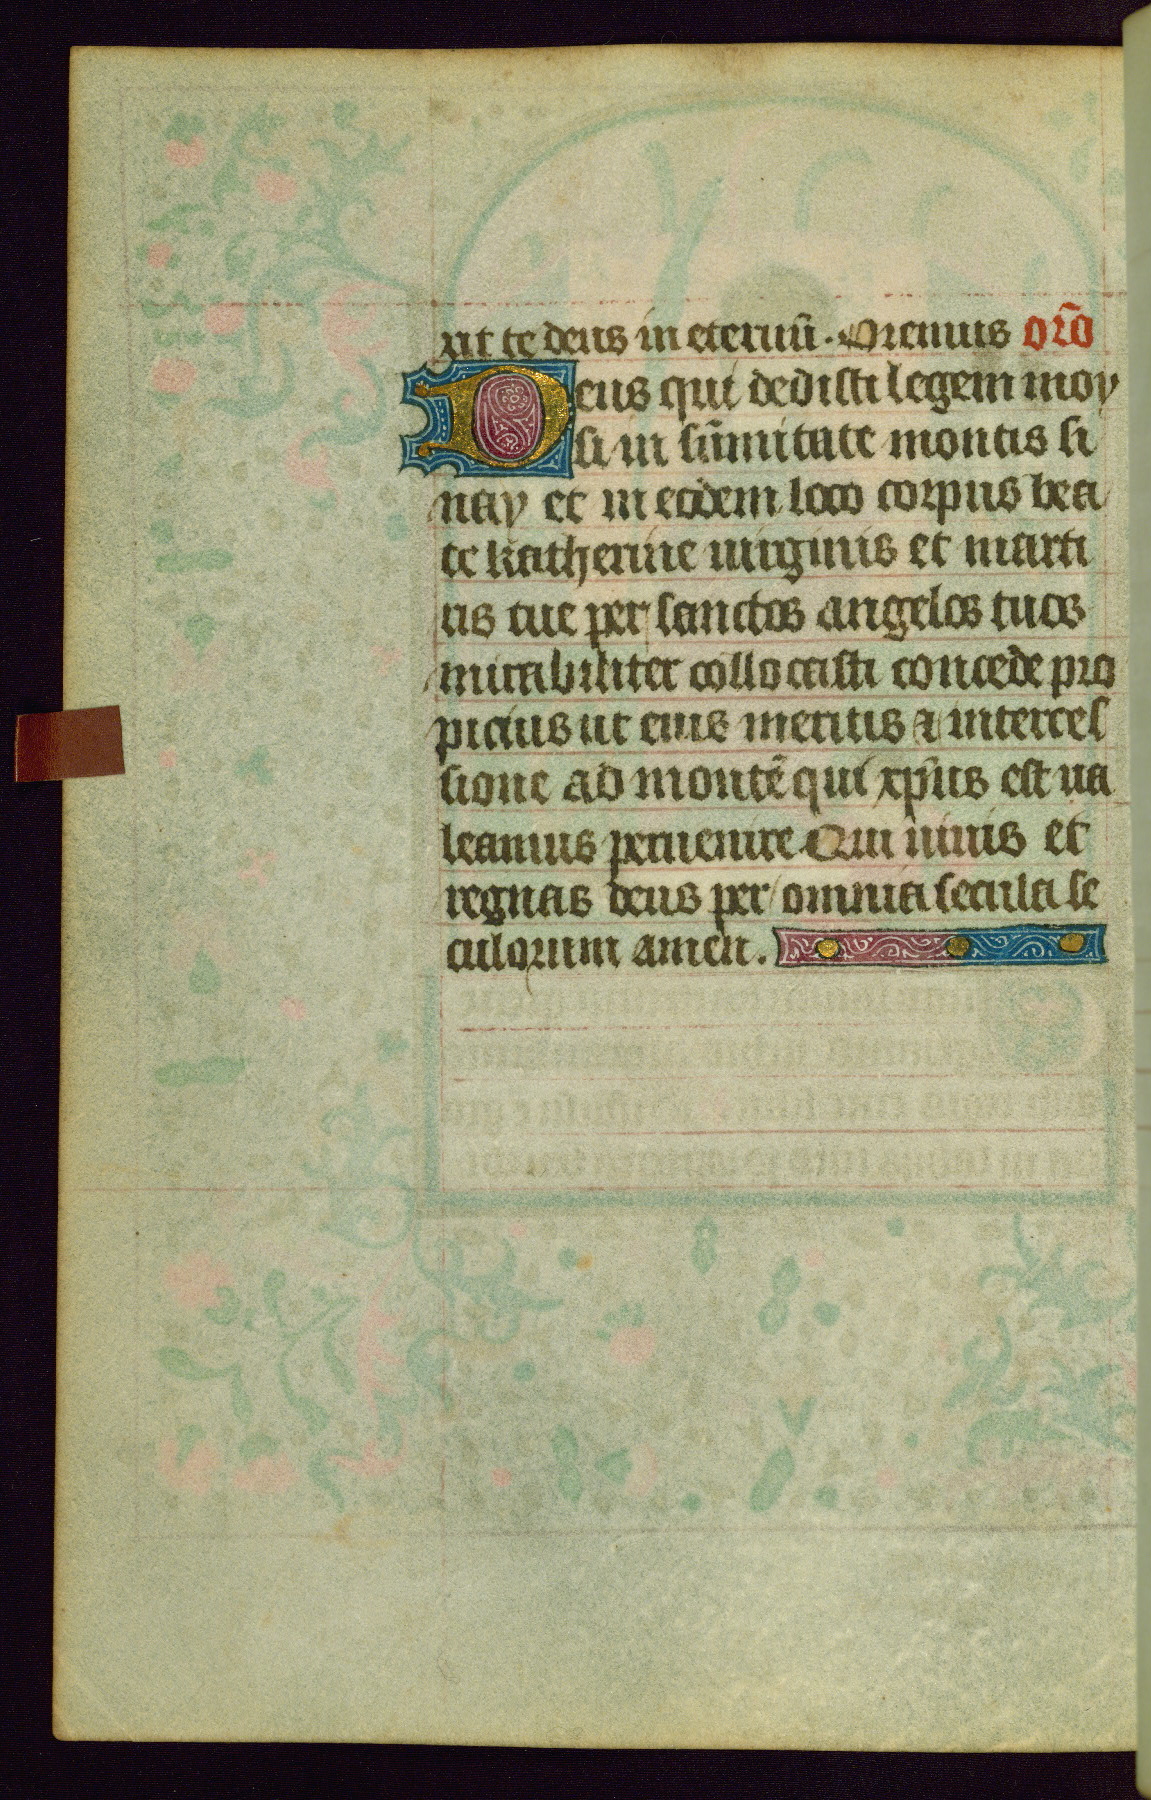 xit te deus in eternū. Oremus orō
Deus qui dedisti legem moy
si in sūmitate montis si
nay et in eodem loco corpus bea
te katherine uirginis et marti
ris tue per sanctos angelos tuos
mirabiliter collocasti concede pro
picius ut eius meritis & interces
sione ad montē qui xp̄us est ua
leamus peruenire Qui uiuis et
regnas deus per omnia secula se
culorum amen.